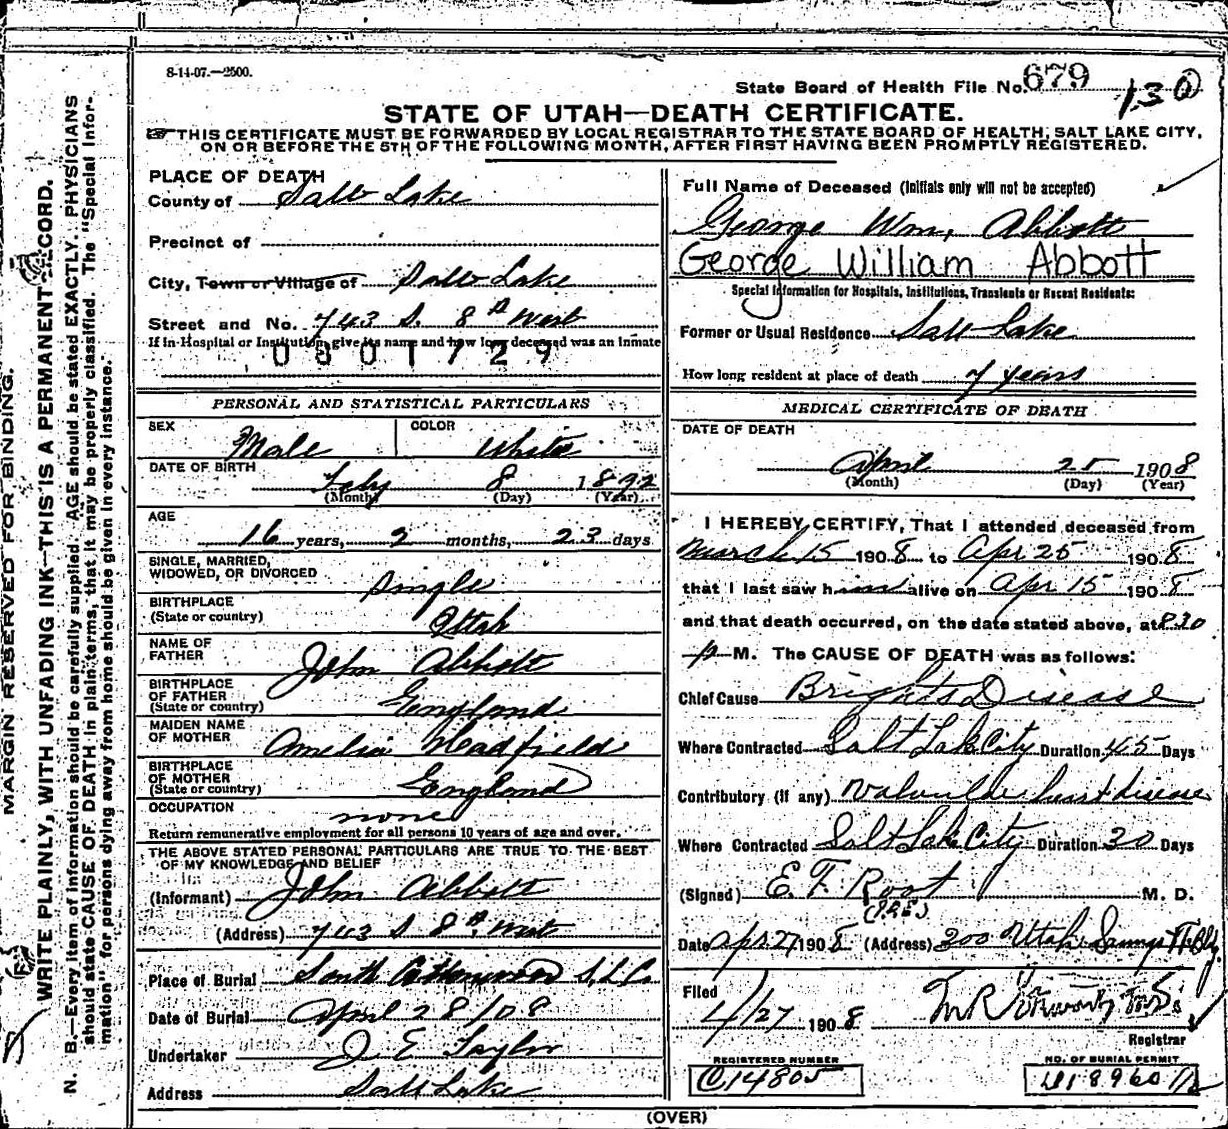 8-14-07.—2500.
State Board of Health File No. 679
130
STATE OF UTAH—DEATH CERTIFICATE.
THIS CERTIFICATE MUST BE FORWARDED BY LOCAL REGISTRAR TO THE STATE BOARD OF HEALTH, SALT LAKE CITY,
ON OR BEFORE THE 5TH OF THE FOLLOWING MONTH, AFTER FIRST HAVING BEEN PROMPTLY REGISTERED.
MARGIN RESERVED FOR BINDING.
WRITE PLAINLY, WITH UNFADING INK—THIS IS A PERMANENT RECORD.
N. B.—Every item of information should be carefully supplied. AGE should be stated EXACTLY. PHYSICIANS
should state CAUSE OF DEATH in plain terms, that it may be properly classified. The "Special Infor-
mation" for persons dying away from home should be given in every instance.
PLACE OF DEATH
County of Salt Lake
Precinct of
City, Town or Village of Salt Lake
Street and No. 743 S. 8th West
If in Hospital or Institution, give its name and how long deceased was an inmate
0801729
PERSONAL AND STATISTICAL PARTICULARS
SEX Male COLOR White
DATE OF BIRTH Feby 8 1892
(Month) (Day) (Year)
AGE
16 years, 2 months, 23 days
SINGLE, MARRIED,
WIDOWED, OR DIVORCED Single
BIRTHPLACE
(State or country) Utah
NAME OF
FATHER John Abbott
BIRTHPLACE
OF FATHER
(State or country) England
MAIDEN NAME
OF MOTHER Amelia Hadfield
BIRTHPLACE
OF MOTHER
(State or country) England
OCCUPATION none
Return remunerative employment for all persons 10 years of age and over.
THE ABOVE STATED PERSONAL PARTICULARS ARE TRUE TO THE BEST
OF MY KNOWLEDGE AND BELIEF
(Informant) John Abbott
(Address) 743 S 8th West
Place of Burial South S.L.C.
Date of Burial April 28/08
Undertaker J E Taylor
Address Salt Lake
Full Name of Deceased (Initials only will not be accepted)
George Wm, Abbott
George William Abbott
Special Information for Hospitals, Institutions, Transients or Recent Residents:
Former or Usual Residence Salt Lake
How long resident at place of death 7 years
MEDICAL CERTIFICATE OF DEATH
DATE OF DEATH
April 25 1908
(Month) (Day) (Year)
I HEREBY CERTIFY, That I attended deceased from
March 15 1908 to Apr 25 1908
that I last saw him alive on Apr 15 1908
and that death occurred, on the date stated above, at 8.30
p M. The CAUSE OF DEATH was as follows:
Chief Cause Brights Disease
Where Contracted Salt Lake City Duration 45 Days
Contributory (if any) Valvular heart disease
Where Contracted Salt Lake City Duration 30 Days
(Signed) E. F. Root M. D.
Date Apr 27 1908 (Address) 300 Utah Savings Tr Blg
Filed
4/27 1908
Registrar
REGISTERED NUMBER
C14805
NO. OF BURIAL PERMIT
(OVER)